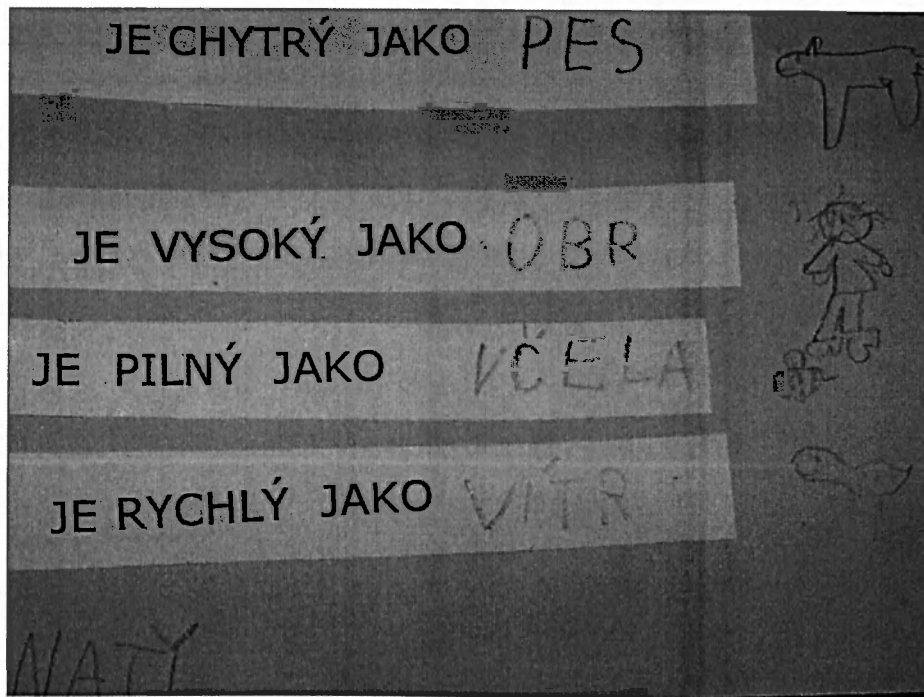 JE CHYTRÝ JAKO PES
JE VYSOKÝ JAKO OBR
JE PILNÝ JAKO VČELA
JE RYCHLÝ JAKO VÍTR